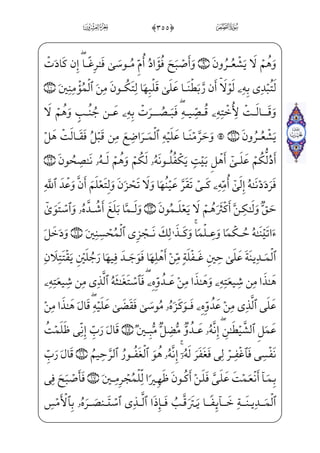 ﴿٣٥٥﴾
وَهُمْ لَا يَشْعُرُونَ ۝٩ وَأَصْبَحَ فُؤَادُ أُمِّ مُوسَىٰ فَٰرِغًا ۖ إِن كَادَتْ
لَتُبْدِى بِهِۦ لَوْلَآ أَن رَّبَطْنَا عَلَىٰ قَلْبِهَا لِتَكُونَ مِنَ ٱلْمُؤْمِنِينَ ۝١٠
وَقَالَتْ لِأُخْتِهِۦ قُصِّيهِ ۖ فَبَصُرَتْ بِهِۦ عَن جُنُبٍ وَهُمْ لَا
يَشْعُرُونَ ۝١١ ۞ وَحَرَّمْنَا عَلَيْهِ ٱلْمَرَاضِعَ مِن قَبْلُ فَقَالَتْ هَلْ
أَدُلُّكُمْ عَلَىٰٓ أَهْلِ بَيْتٍ يَكْفُلُونَهُۥ لَكُمْ وَهُمْ لَهُۥ نَٰصِحُونَ ۝١٢
فَرَدَدْنَٰهُ إِلَىٰٓ أُمِّهِۦ كَىْ تَقَرَّ عَيْنُهَا وَلَا تَحْزَنَ وَلِتَعْلَمَ أَنَّ وَعْدَ ٱللَّهِ
حَقٌّ وَلَٰكِنَّ أَكْثَرَهُمْ لَا يَعْلَمُونَ ۝١٣ وَلَمَّا بَلَغَ أَشُدَّهُۥ وَٱسْتَوَىٰٓ
ءَاتَيْنَٰهُ حُكْمًا وَعِلْمًا ۚ وَكَذَٰلِكَ نَجْزِى ٱلْمُحْسِنِينَ ۝١٤ وَدَخَلَ
ٱلْمَدِينَةَ عَلَىٰ حِينِ غَفْلَةٍ مِّنْ أَهْلِهَا فَوَجَدَ فِيهَا رَجُلَيْنِ يَقْتَتِلَانِ
هَٰذَا مِن شِيعَتِهِۦ وَهَٰذَا مِنْ عَدُوِّهِۦ ۖ فَٱسْتَغَٰثَهُ ٱلَّذِى مِن شِيعَتِهِۦ
عَلَى ٱلَّذِى مِنْ عَدُوِّهِۦ فَوَكَزَهُۥ مُوسَىٰ فَقَضَىٰ عَلَيْهِ ۖ قَالَ هَٰذَا مِنْ
عَمَلِ ٱلشَّيْطَٰنِ ۖ إِنَّهُۥ عَدُوٌّ مُّضِلٌّ مُّبِينٌ ۝١٥ قَالَ رَبِّ إِنِّى ظَلَمْتُ
نَفْسِى فَٱغْفِرْ لِى فَغَفَرَ لَهُۥٓ ۚ إِنَّهُۥ هُوَ ٱلْغَفُورُ ٱلرَّحِيمُ ۝١٦ قَالَ رَبِّ
بِمَآ أَنْعَمْتَ عَلَىَّ فَلَنْ أَكُونَ ظَهِيرًا لِّلْمُجْرِمِينَ ۝١٧ فَأَصْبَحَ فِى
ٱلْمَدِينَةِ خَآئِفًا يَتَرَقَّبُ فَإِذَا ٱلَّذِى ٱسْتَنصَرَهُۥ بِٱلْأَمْسِ